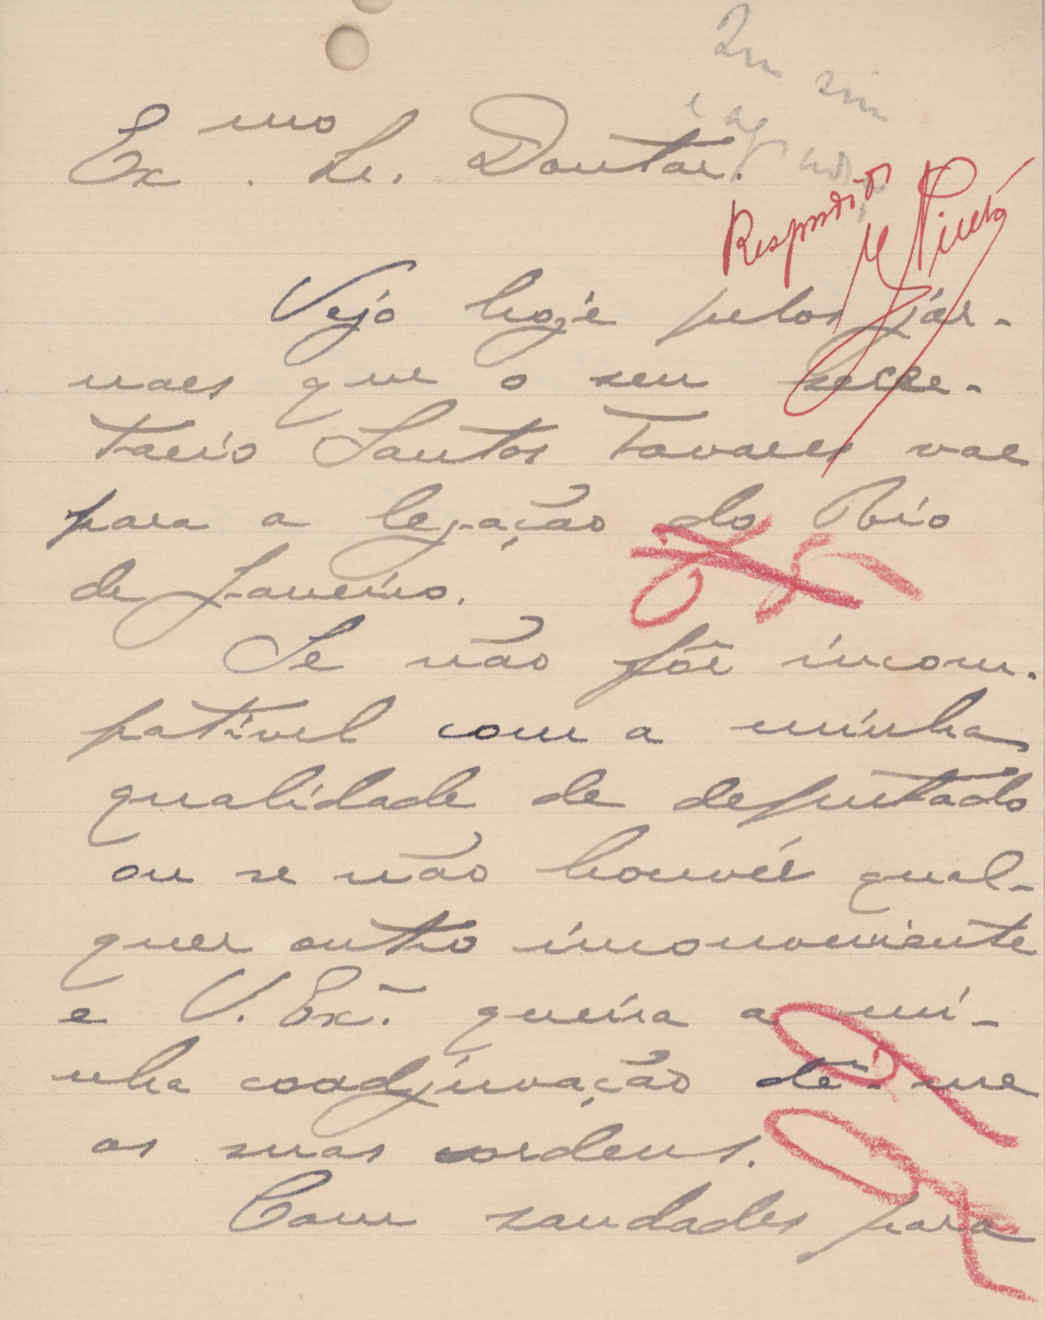 Exmo. Sr. Doutor.
Respondido
Vejo hoje pelos jór-
naes que o seu secre-
tario Santos Tavares vae
para a legação do Rio
de Janeiro.
Se não fôr incom-
pativel com a minha
qualidade de deputado
ou se não houvér qual-
quer outro inconveniente
e V. Exª. queira a mi-
nha coadjuvação dê-me
as suas ordens.
Com saudades para